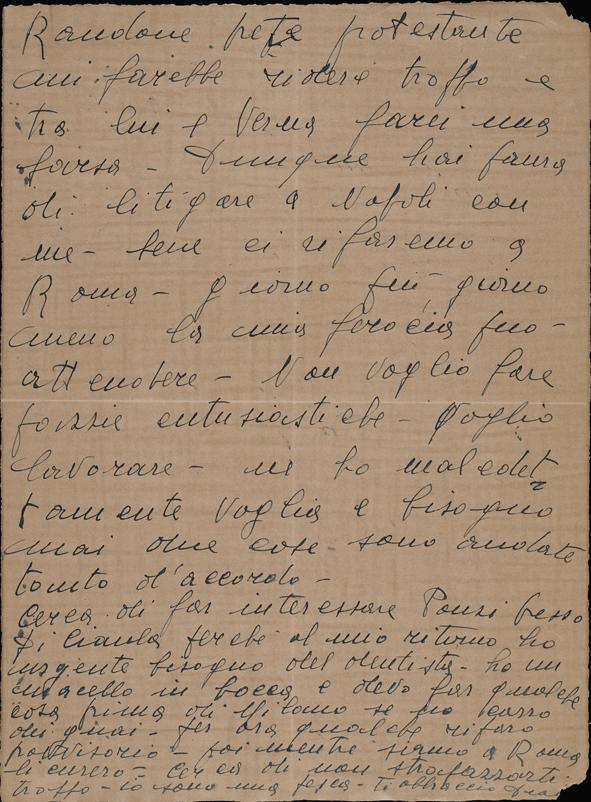 Randone prete protestante
mi farebbe ridere troppo e
tra lui e Verna farei una
farsa - Dunque hai paura
di litigare a Napoli con
me - bene ci rifaremo a
Roma - giorno più giorno
meno la mia ferocia può -
attendere - Non voglio fare
pazzie entusiastiche - Voglio
lavorare - ne ho maledet
tamente voglia e bisogno
mai due cose sono andate
tanto d'accordo -
Cerca di far interessare Ponzi presso
perché al mio ritorno ho
urgente bisogno del dentista - ho un
macello in bocca e devo far qualche
cosa prima di Milano se no passo
dei guai - per ora qualche riparo
provvisorio - poi mentre siamo a Roma
li curerò - cerca di non strapazzarti
troppo - io sono una pesca - Ti abbraccio